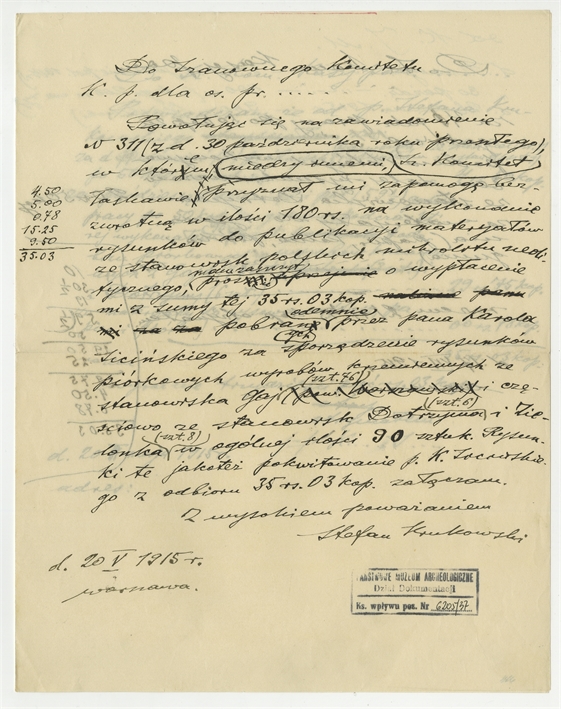 Do Szanownego Komitetu
K. p. dla os. pr. .....
Powołując się na zawiadomienie
N 311 (z d. 30 października roku przeszłego),
w którym, między innemi, Sz. Komitet
łaskawie przyznał mi zapomogę bez-
zwrotną w ilości 180 rs. na wykonanie
rysunków do publikacyi materyałów
ze stanowisk polskich mikrolitu nedi-
tycznego, proszę o wypłacenie
mi z sumy tej 35 rs. 03 kop.
pobranych odemnie przez pana Karola
Sicińskiego za sporządzenie rysunków
piórkowych wyrobów krzemiennych ze
stanowiska Gaj (szt. 76) i czę-
ściowo ze stanowisk (szt. 6) i Zie-
lonka (szt. 8) w ogólnej ilości 90 sztuk. Rysun-
ki te jakoteż pokwitowanie p. K.
go z odbioru 35 rs. 03 kop. załączam.
Z wysokiem poważaniem
Stefan Krukowski
d. 20 V 1915 r.
Warszawa.
4.50
5.00
0.78
15.25
9.50
35.03
PAŃSTWOWE MUZEUM ARCHEOLOGICZNE
Dział Dokumentacji
Ks. wpływu poz. Nr 6205/57